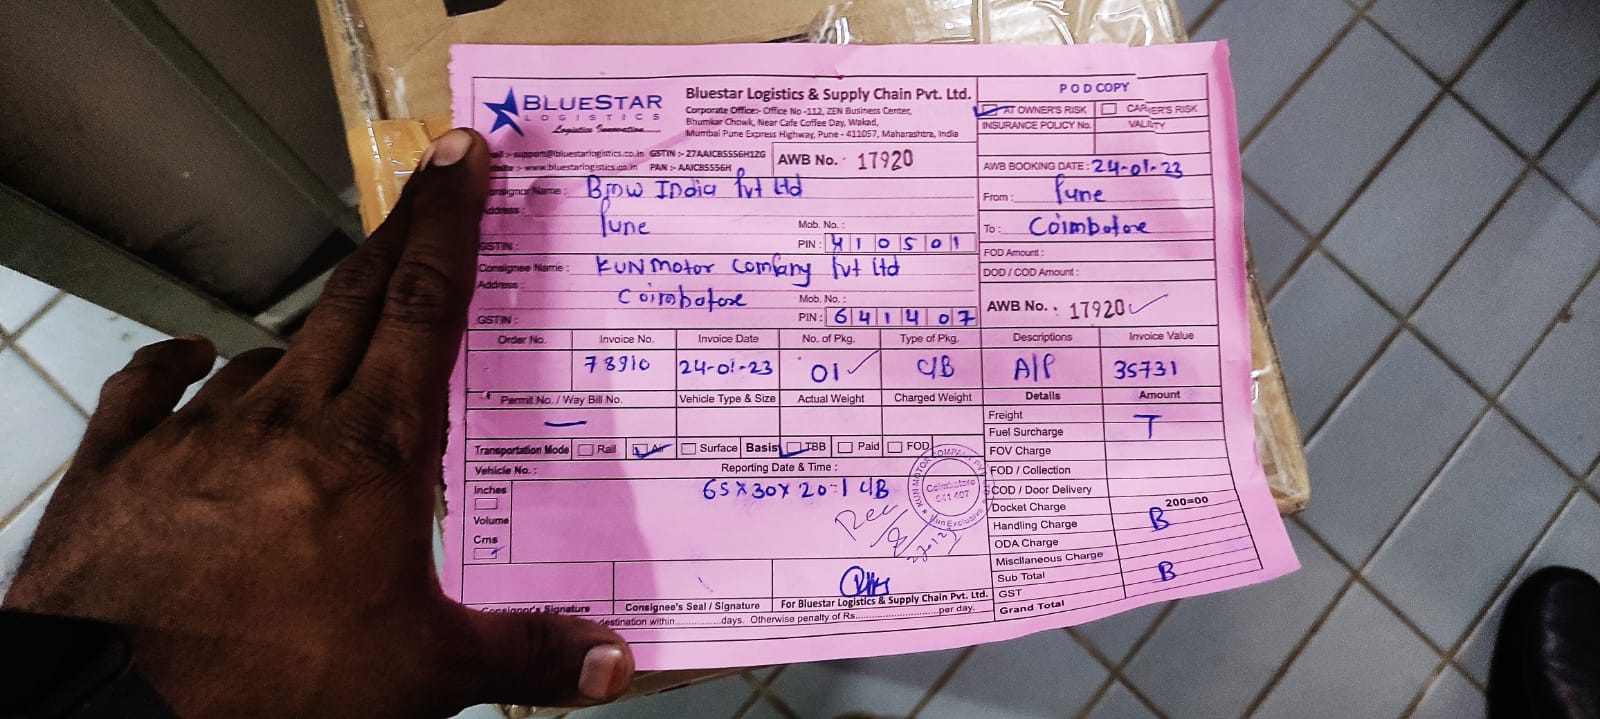 BLUESTAR
LOGISTICS
Logistics Innovation......
Bluestar Logistics & Supply Chain Pvt. Ltd.
Corporate Office:- Office No -112, ZEN Business Center,
Bhumkar Chowk, Near Cafe Coffee Day, Wakad,
Mumbai Pune Express Highway, Pune - 411057, Maharashtra, India
:- support@bluestarlogistics.co.in GSTIN :- 27AAICB5556H1ZG
:- www.bluestarlogistics.co.in PAN :- AAICB5556H
AWB No. 17920
POD COPY
AT OWNER'S RISK CARRIER'S RISK
INSURANCE POLICY No. VALIDITY
AWB BOOKING DATE : 24-01-23
Consignor Name : BMW India Pvt Ltd
Address :
Pune Mob. No. :
GSTIN : PIN : 410501
From : Pune
To : Coimbatore
Consignee Name : KUN Motor Company Pvt Ltd
Address :
Coimbatore Mob. No. :
GSTIN : PIN : 641407
FOD Amount :
DOD / COD Amount :
AWB No. : 17920
Order No. Invoice No. Invoice Date No. of Pkg. Type of Pkg. Descriptions Invoice Value
78910 24-01-23 01 C/B A/P 35731
Permit No. / Way Bill No. Vehicle Type & Size Actual Weight Charged Weight Details Amount
Transportation Mode Rail Air Surface Basis TBB Paid FOD
Vehicle No. : Reporting Date & Time :
Inches
Volume
Cms
65x30x20=1 C/B
Rec
KUN MOTOR COMPANY
Coimbatore
641 407
Kun Exclusive
Freight
Fuel Surcharge T
FOV Charge
FOD / Collection
COD / Door Delivery
Docket Charge 200=00
Handling Charge B
ODA Charge
Miscllaneous Charge
Sub Total B
GST
Grand Total
Consignor's Signature Consignee's Seal / Signature For Bluestar Logistics & Supply Chain Pvt. Ltd.
destination within...............days. Otherwise penalty of Rs...............................per day.